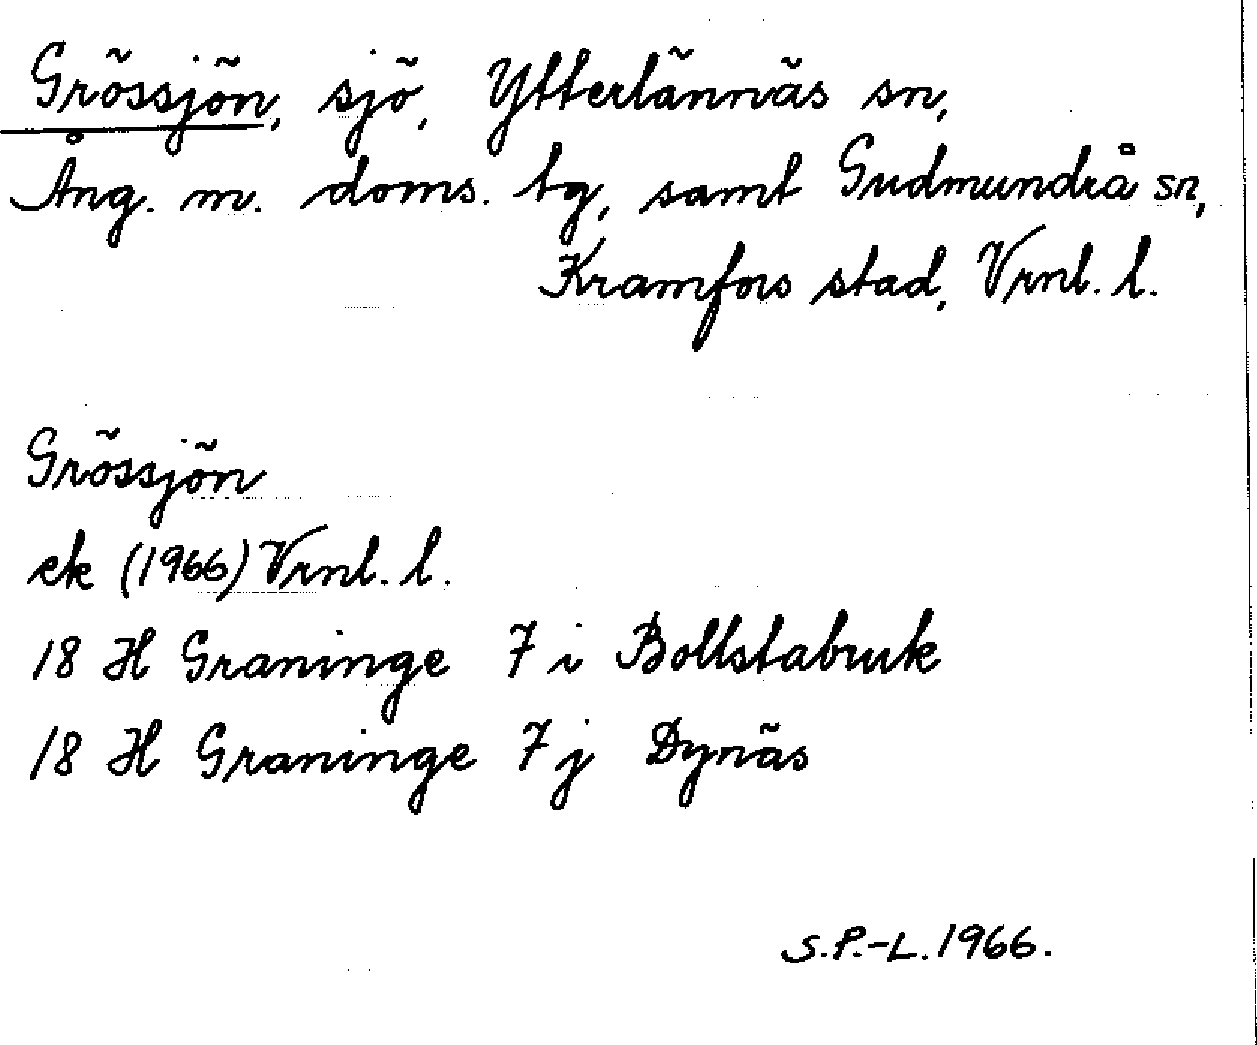 Grössjön, sjö, Ytterlännäs sn,
Ång. m. doms. tg, samt Gudmundrå sn,
Kramfors stad, Vrnl. l.
Grössjön
ek (1966) Vrnl. l.
18 H Graninge 7 i Bollstabruk
18 H Graninge 7 j Dynäs
S.P.-L. 1966.